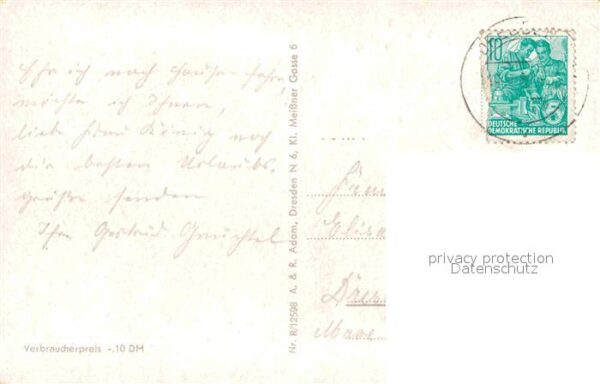 Ehe ich nach Hause fahre
möchte ich Ihnen,
liebe Frau König noch
die besten Urlaubs-
grüße senden
Ihre Gertrud
Verbraucherpreis -.10 DM
Nr. R/12598 A. & R. Adam, Dresden N 6, Kl. Meißner Gasse 6
10
DEUTSCHE
DEMOKRATISCHE REPUBLIK
privacy protection
Datenschutz